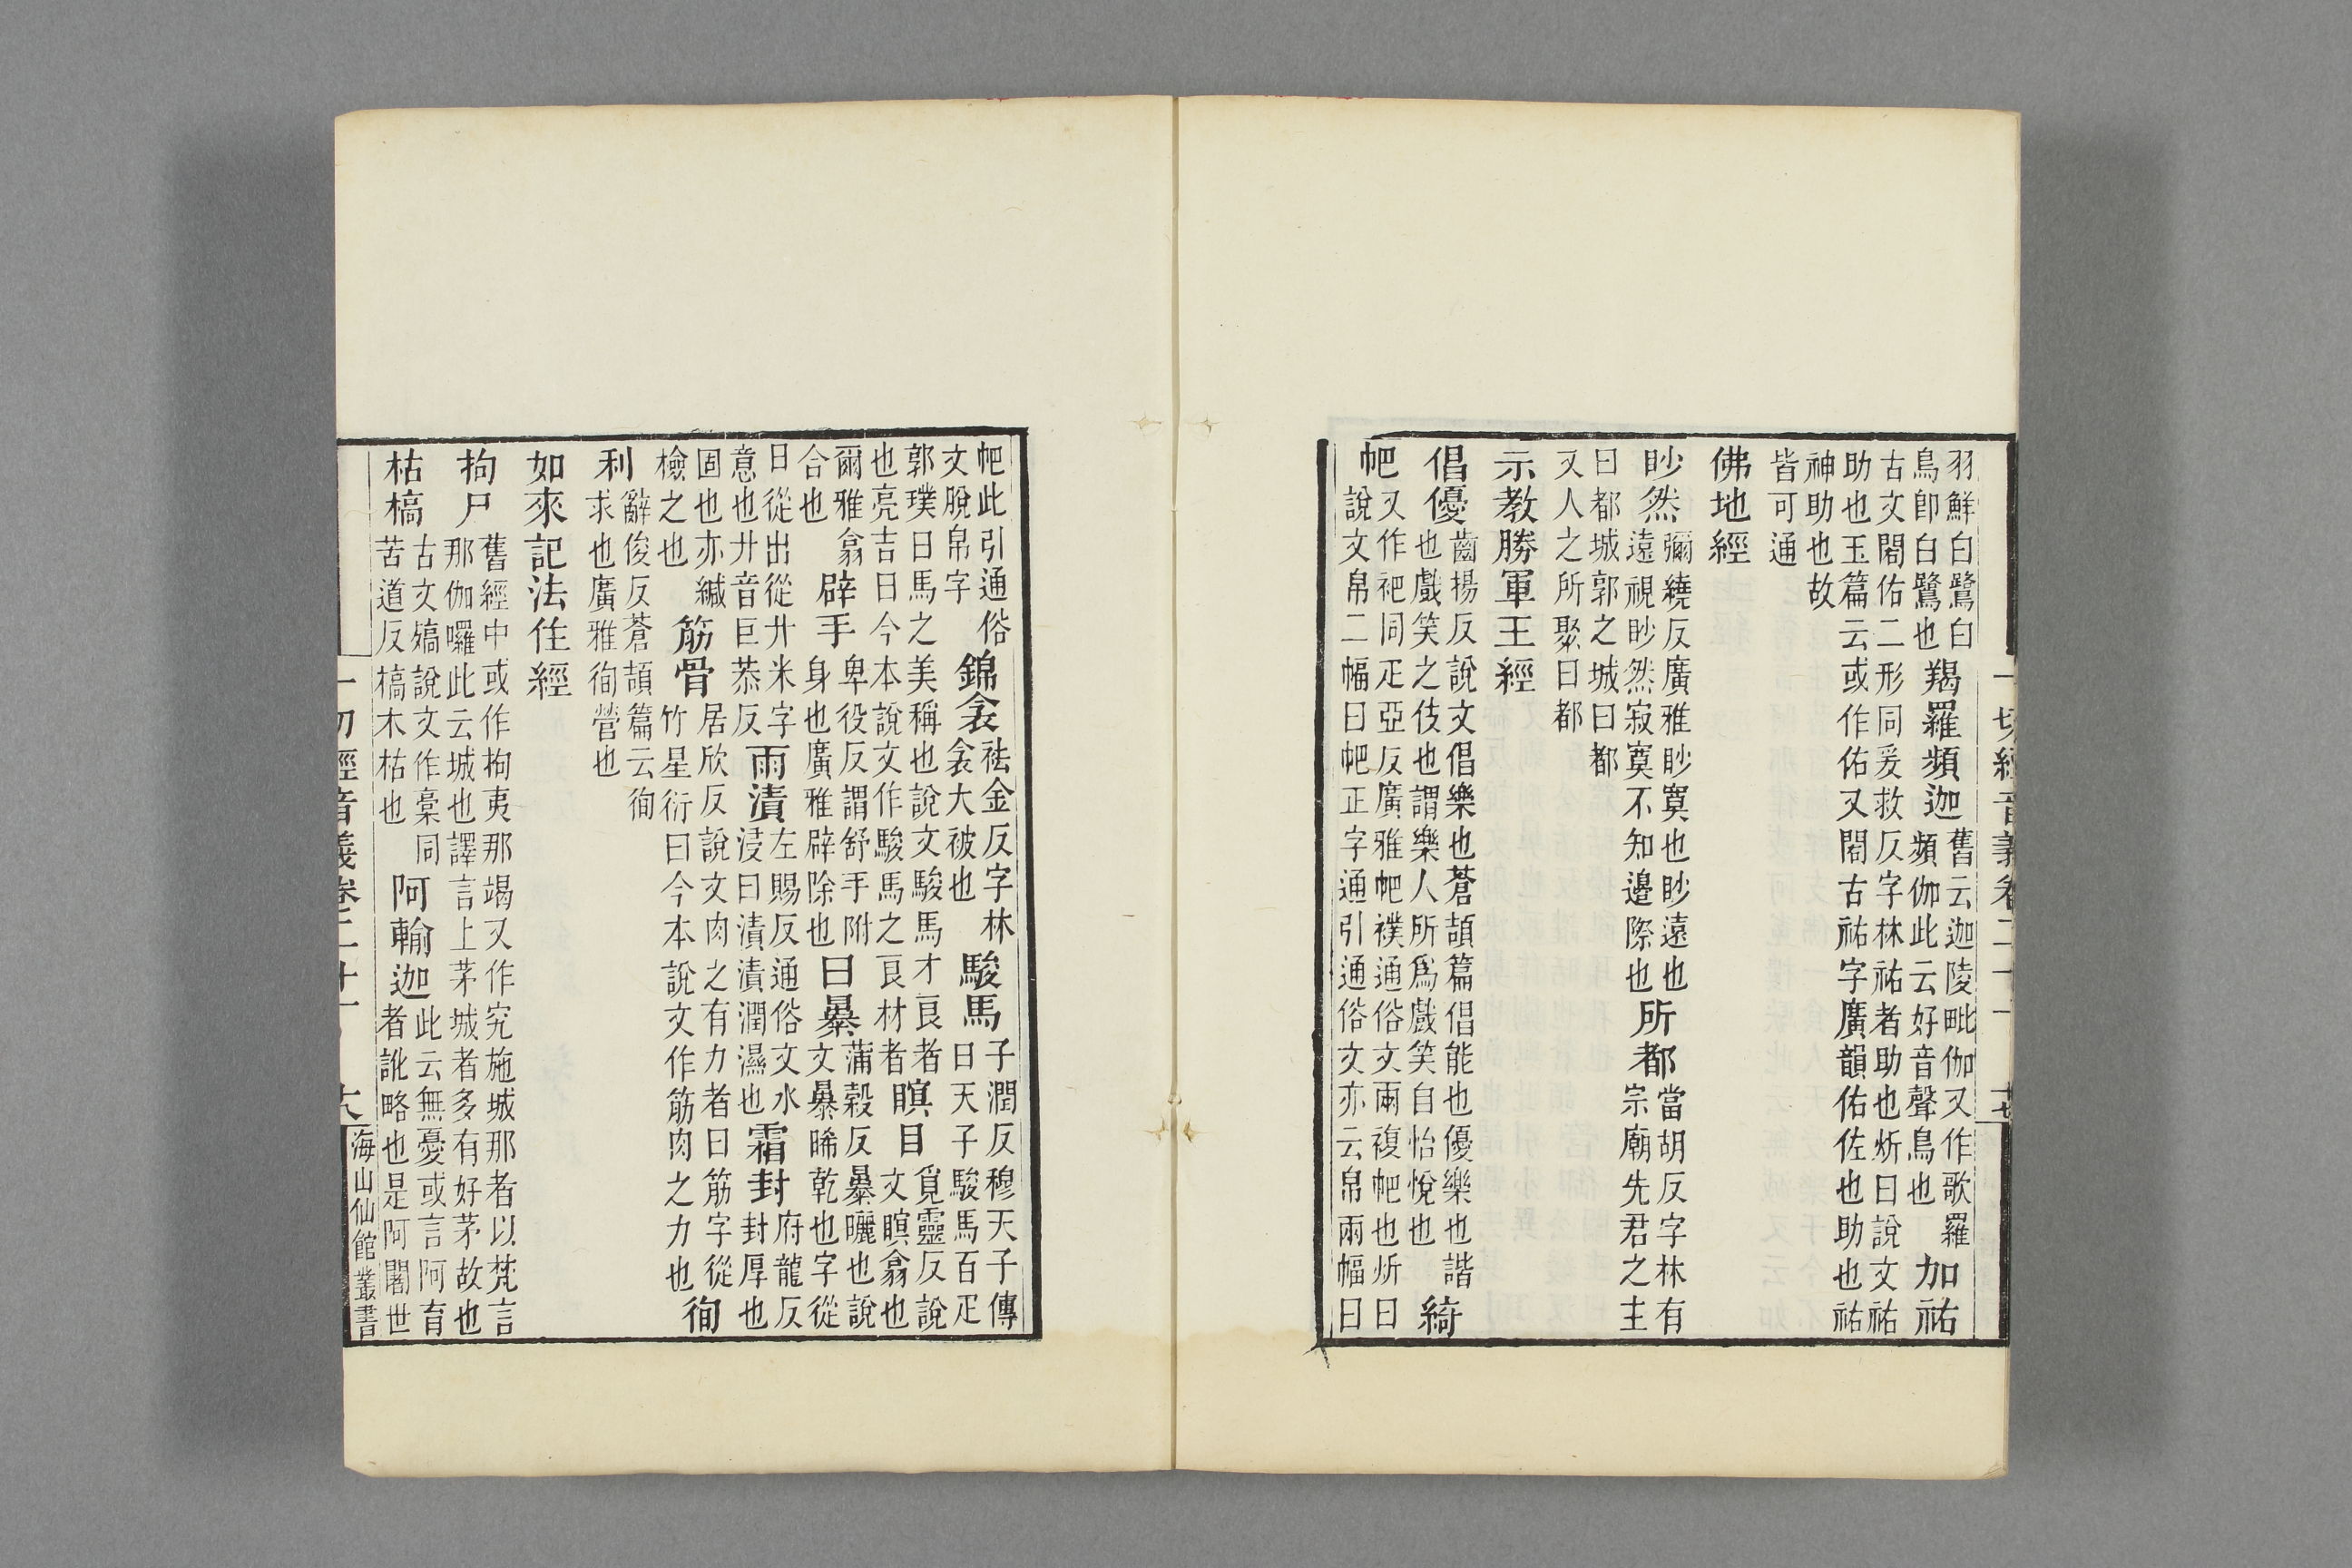 羽鮮白鷺白鳥卽白鷺也羯羅頻迦舊云迦陵毗伽又作歌羅頻伽此云好音聲鳥也加祐
古文閣佑二形同爰救反字林祐者助也炘曰說文祐助也玉篇云或作佑又閣古祐字廣韻佑佐也助也祐
神助也故皆可通
佛地經
眇然彌繞反廣雅眇寞也眇遠也遠視眇然寂寞不知邊際也所都當胡反字林有宗廟先君之主
曰都城郭之城曰都又人之所聚曰都
示教勝軍王經
倡優齒揚反說文倡樂也蒼頡篇倡能也優樂也諧也戲笑之伎也謂樂人所爲戲笑自怡悅也綺
帊又作祀同疋亞反廣雅帊襆通俗文兩複帊也炘曰說文帛二幅曰帊正字通引通俗文亦云帛兩幅曰
一切經音義卷二十一 十七
帊此引通俗文脫帛字錦衾祛金反字林衾大被也駿馬子潤反穆天子傳曰天子駿馬百疋
郭璞曰馬之美稱也說文駿馬才良者也亮吉曰今本說文作駿馬之良材者瞑目覓靈反說文瞑翕也
爾雅翕合也辟手卑役反謂舒手附身也廣雅辟除也曰暴蒲穀反暴曬也說文暴晞乾也字從
日從出從廾米字意也廾音巨恭反雨漬左賜反通俗文水浸曰漬漬潤濕也霜封府龍反封厚也
固也亦緘檢之也筋骨居欣反說文肉之有力者曰筋字從竹星衍曰今本說文作筋肉之力也徇
利辭俊反蒼頡篇云徇求也廣雅徇營也
如來記法住經
拘尸舊經中或作拘夷那竭又作究施城那者以梵言那伽囉此云城也譯言上茅城者多有好茅故也
枯槁古文熇說文作槀同苦道反槁木枯也阿輸迦此云無憂或言阿育者訛略也是阿闍世
一切經音義卷二十一 十八 海山仙館叢書